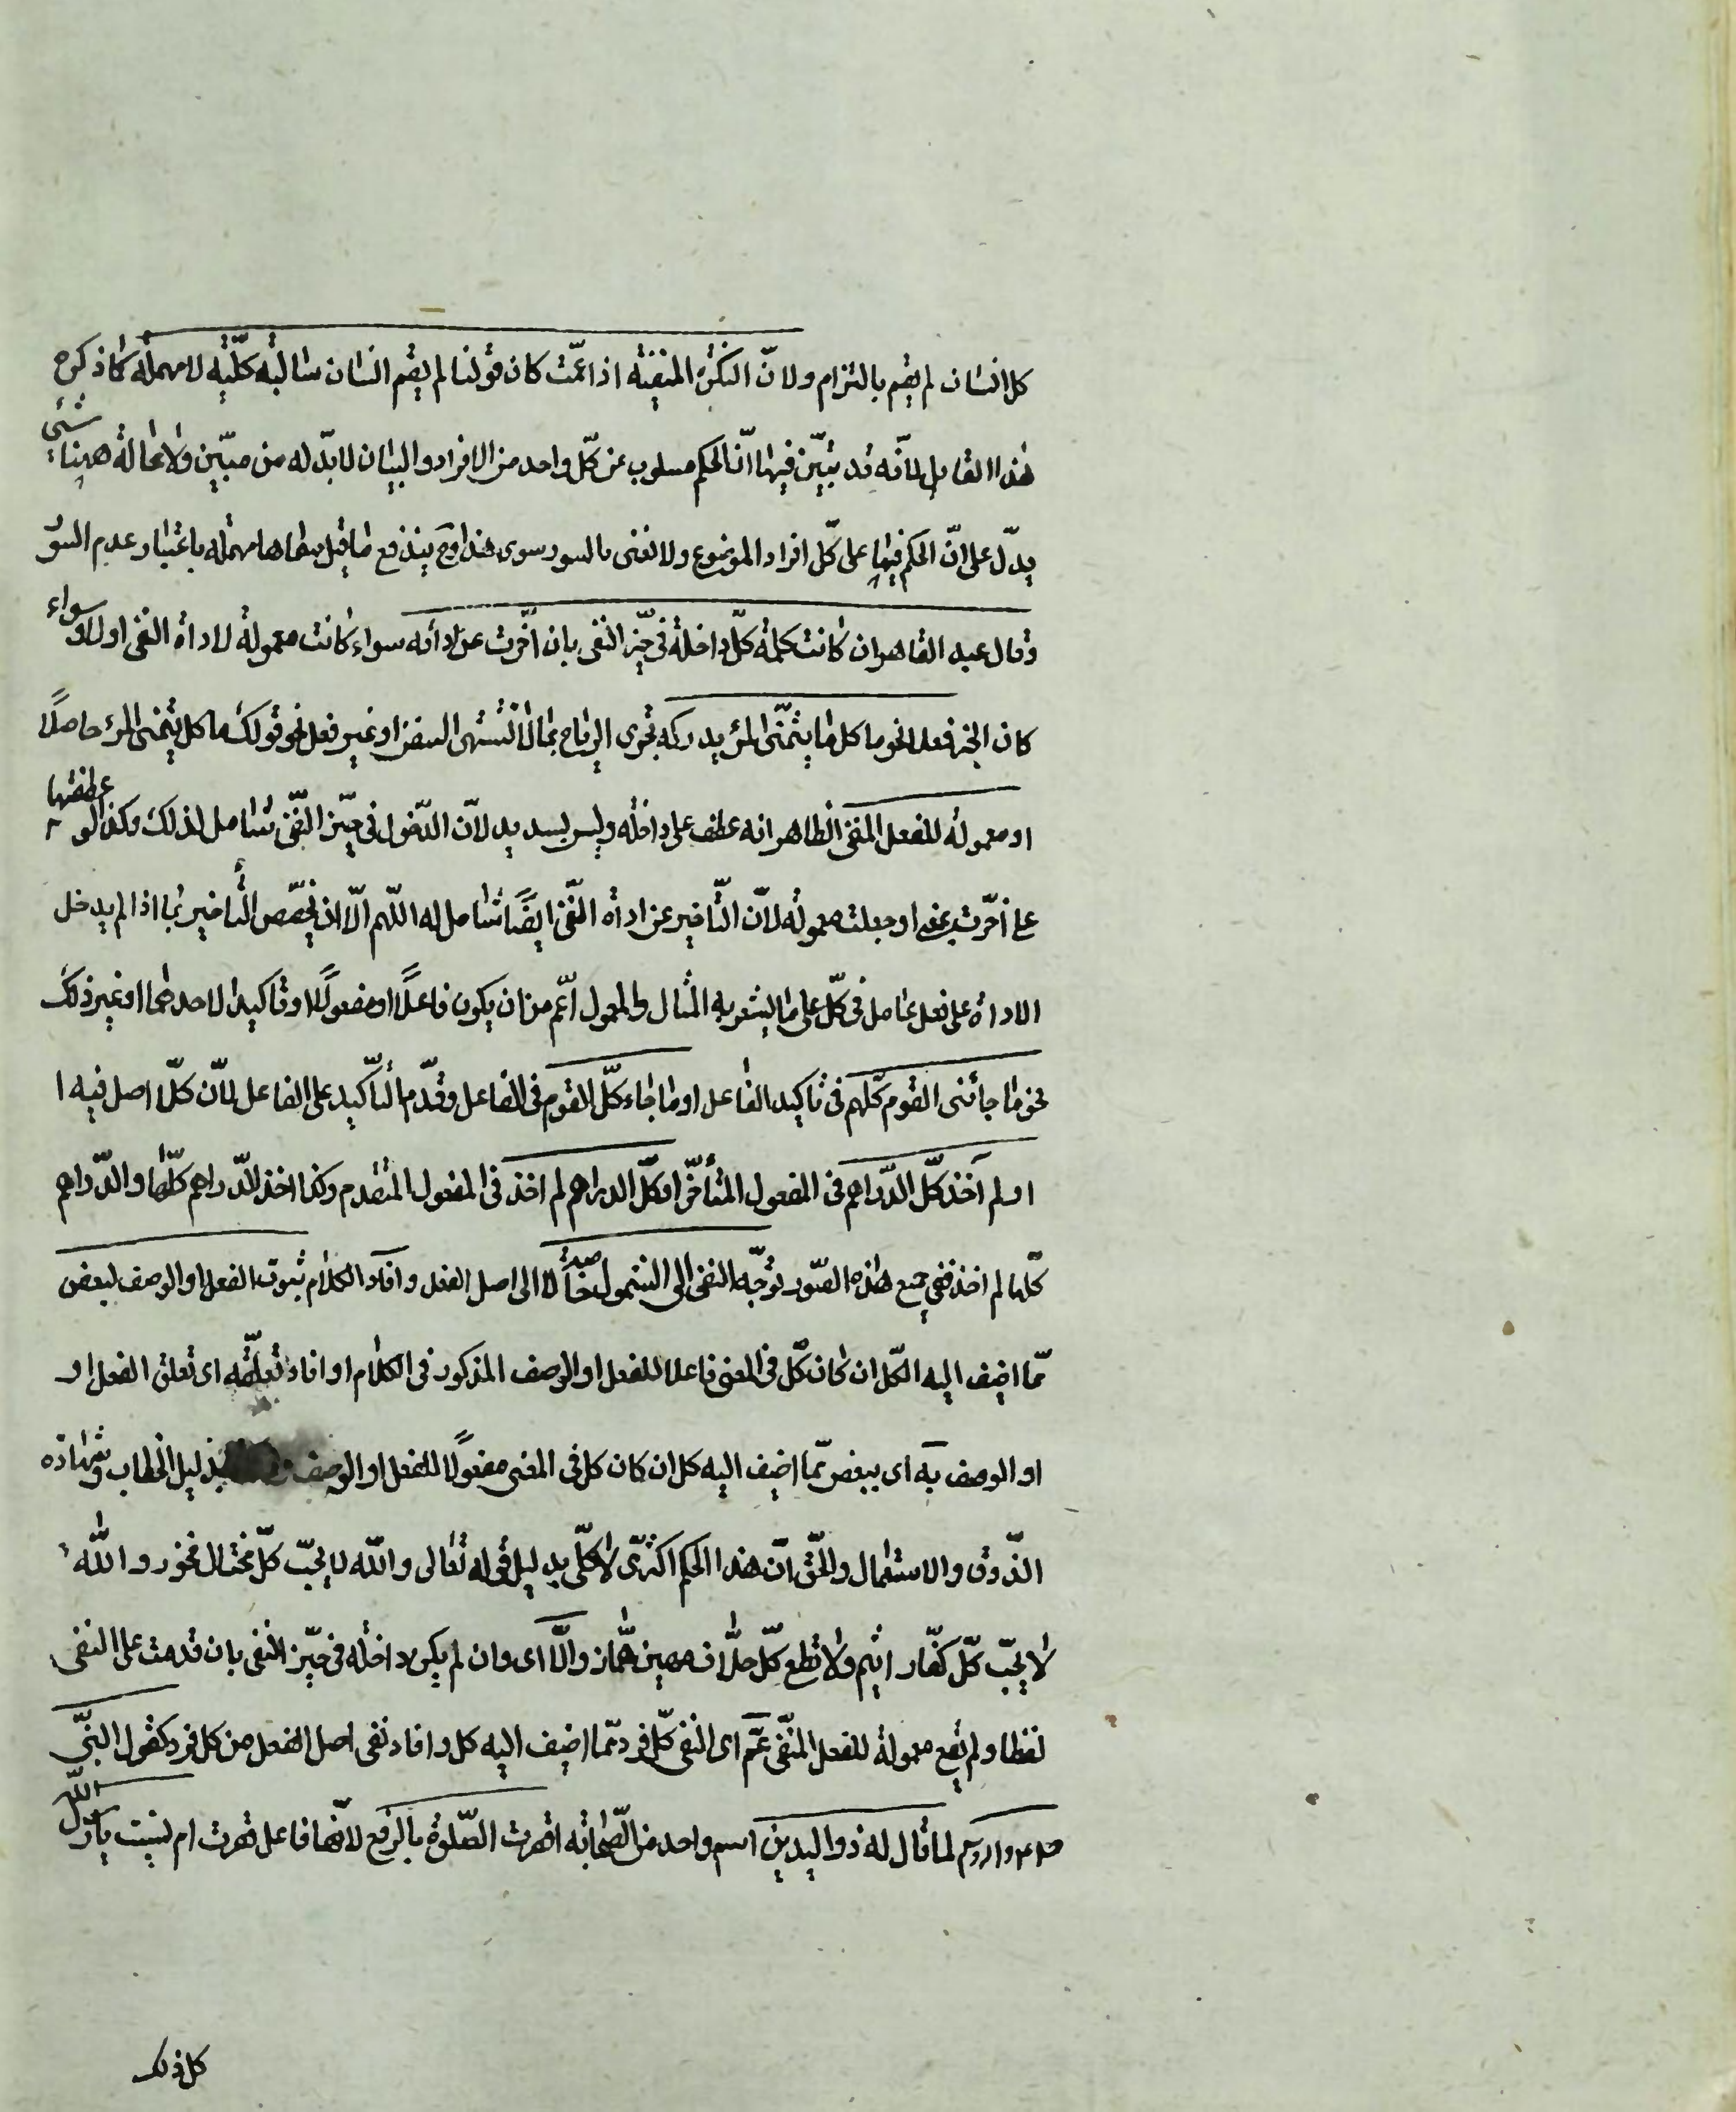 كل انسان لم يقم بالتزام ولانّ النكرة المنفيّة اذا عمّت كان قولنا لم يقم انسان سالبة كلّيّة لا مهملة كما ذكره
هذا القايل لانّه قد بيّن فيها انّ الحكم مسلوب عن كلّ واحد من الافراد والبيان لا بدّ له من مبيّن ولا محالة ههنا شئ
يدلّ على انّ الحكم فيها على كلّ افراد الموضوع ولا نعنى بالسور سوى هذا وح يندفع ما قيل سماها مهملة باعتبار عدم السور
وقال عبد القاهر ان كانت كلمة كلّ داخلة فى حيّز النفى بان اخّرت عن اداته سواء كانت معمولة لاداة النفى اولا وسواء
كان الخبر فعلا نحو ما كل ما يتمنّى المرء يدركه تجرى الرياح بما لا تشتهى السفن او غير فعل نحو قولك ما كل يتمنى المرء حاصلًا
او معمولة للفعل المنفى الظاهر انه عطف على داخلة وليس بسديد لانّ الدّخول فى حيّز النّفى شامل لذلك وكذا لو عطفتها
على اخّرت بمعنى او جعلت معمولة لانّ التّاخير عن اداة النّفى ايضًا شامل له اللّهم الّا ان يخصّص التّأخير بما اذا لم يدخل
الاداة على فعل عامل فى كلّ على ما يشعر به المثال والمعمول اعّم من ان يكون فاعلًا او مفعولًا او تاكيدا لاحدهما او غير ذلك
نحو ما جائنى القوم كلّهم فى تاكيد الفاعل او ما جاء كلّ القوم فى الفاعل وقدّم التأكيد على الفاعل لانّ كلّا اصل فيه
او لم آخذ كلّ الدّراهم فى المفعول المتأخّر او كلّ الدراهم لم اخذ فى المفعول المتقدم وكذا اخذ الدّراهم كلّها والدّراهم
كلّها لم اخذ ففى جميع هذه الصّور توجّه النفى الى الشمول خاصّة لا الى اصل الفعل وافاد الكلام ثبوت الفعل او الوصف لبعض
ممّا اضيف اليه الكلّ ان كان كلّ فى المعنى فاعلا للفعل او الوصف المذكور فى الكلام او افاد تعلّقه اى تعلق الفعل او
او الوصف به اى ببعض ممّا اضيف اليه كل ان كان كل فى المعنى مفعولًا للفعل او الوصف بدليل الخطاب وشهادة
الذّوق والاستعمال والحّق انّ هذا الحكم اكثرىّ لا كلّى بدليل قوله تعالى والله لا يحبّ كلّ مختال فخور والله
لا يحبّ كلّ كفّار اثيم ولا تطع كلّ حلّاف مهين همّاز والّا اى وان لم يكن داخلة فى حيّز النفى بان قدمت على النفى
لفظا ولم تقع معمولة للفعل المنفّى عمّ اى النفى كلّ فرد ممّا اضيف اليه كل وافاد نفى اصل الفعل من كل فرد كقول النبّى
لما قال له ذو اليدين اسم واحد من الصّحابة اقصرت الصّلوة بالرفع لانّها فاعل قصرت ام نسيت يا رسول الله
كل ذلك